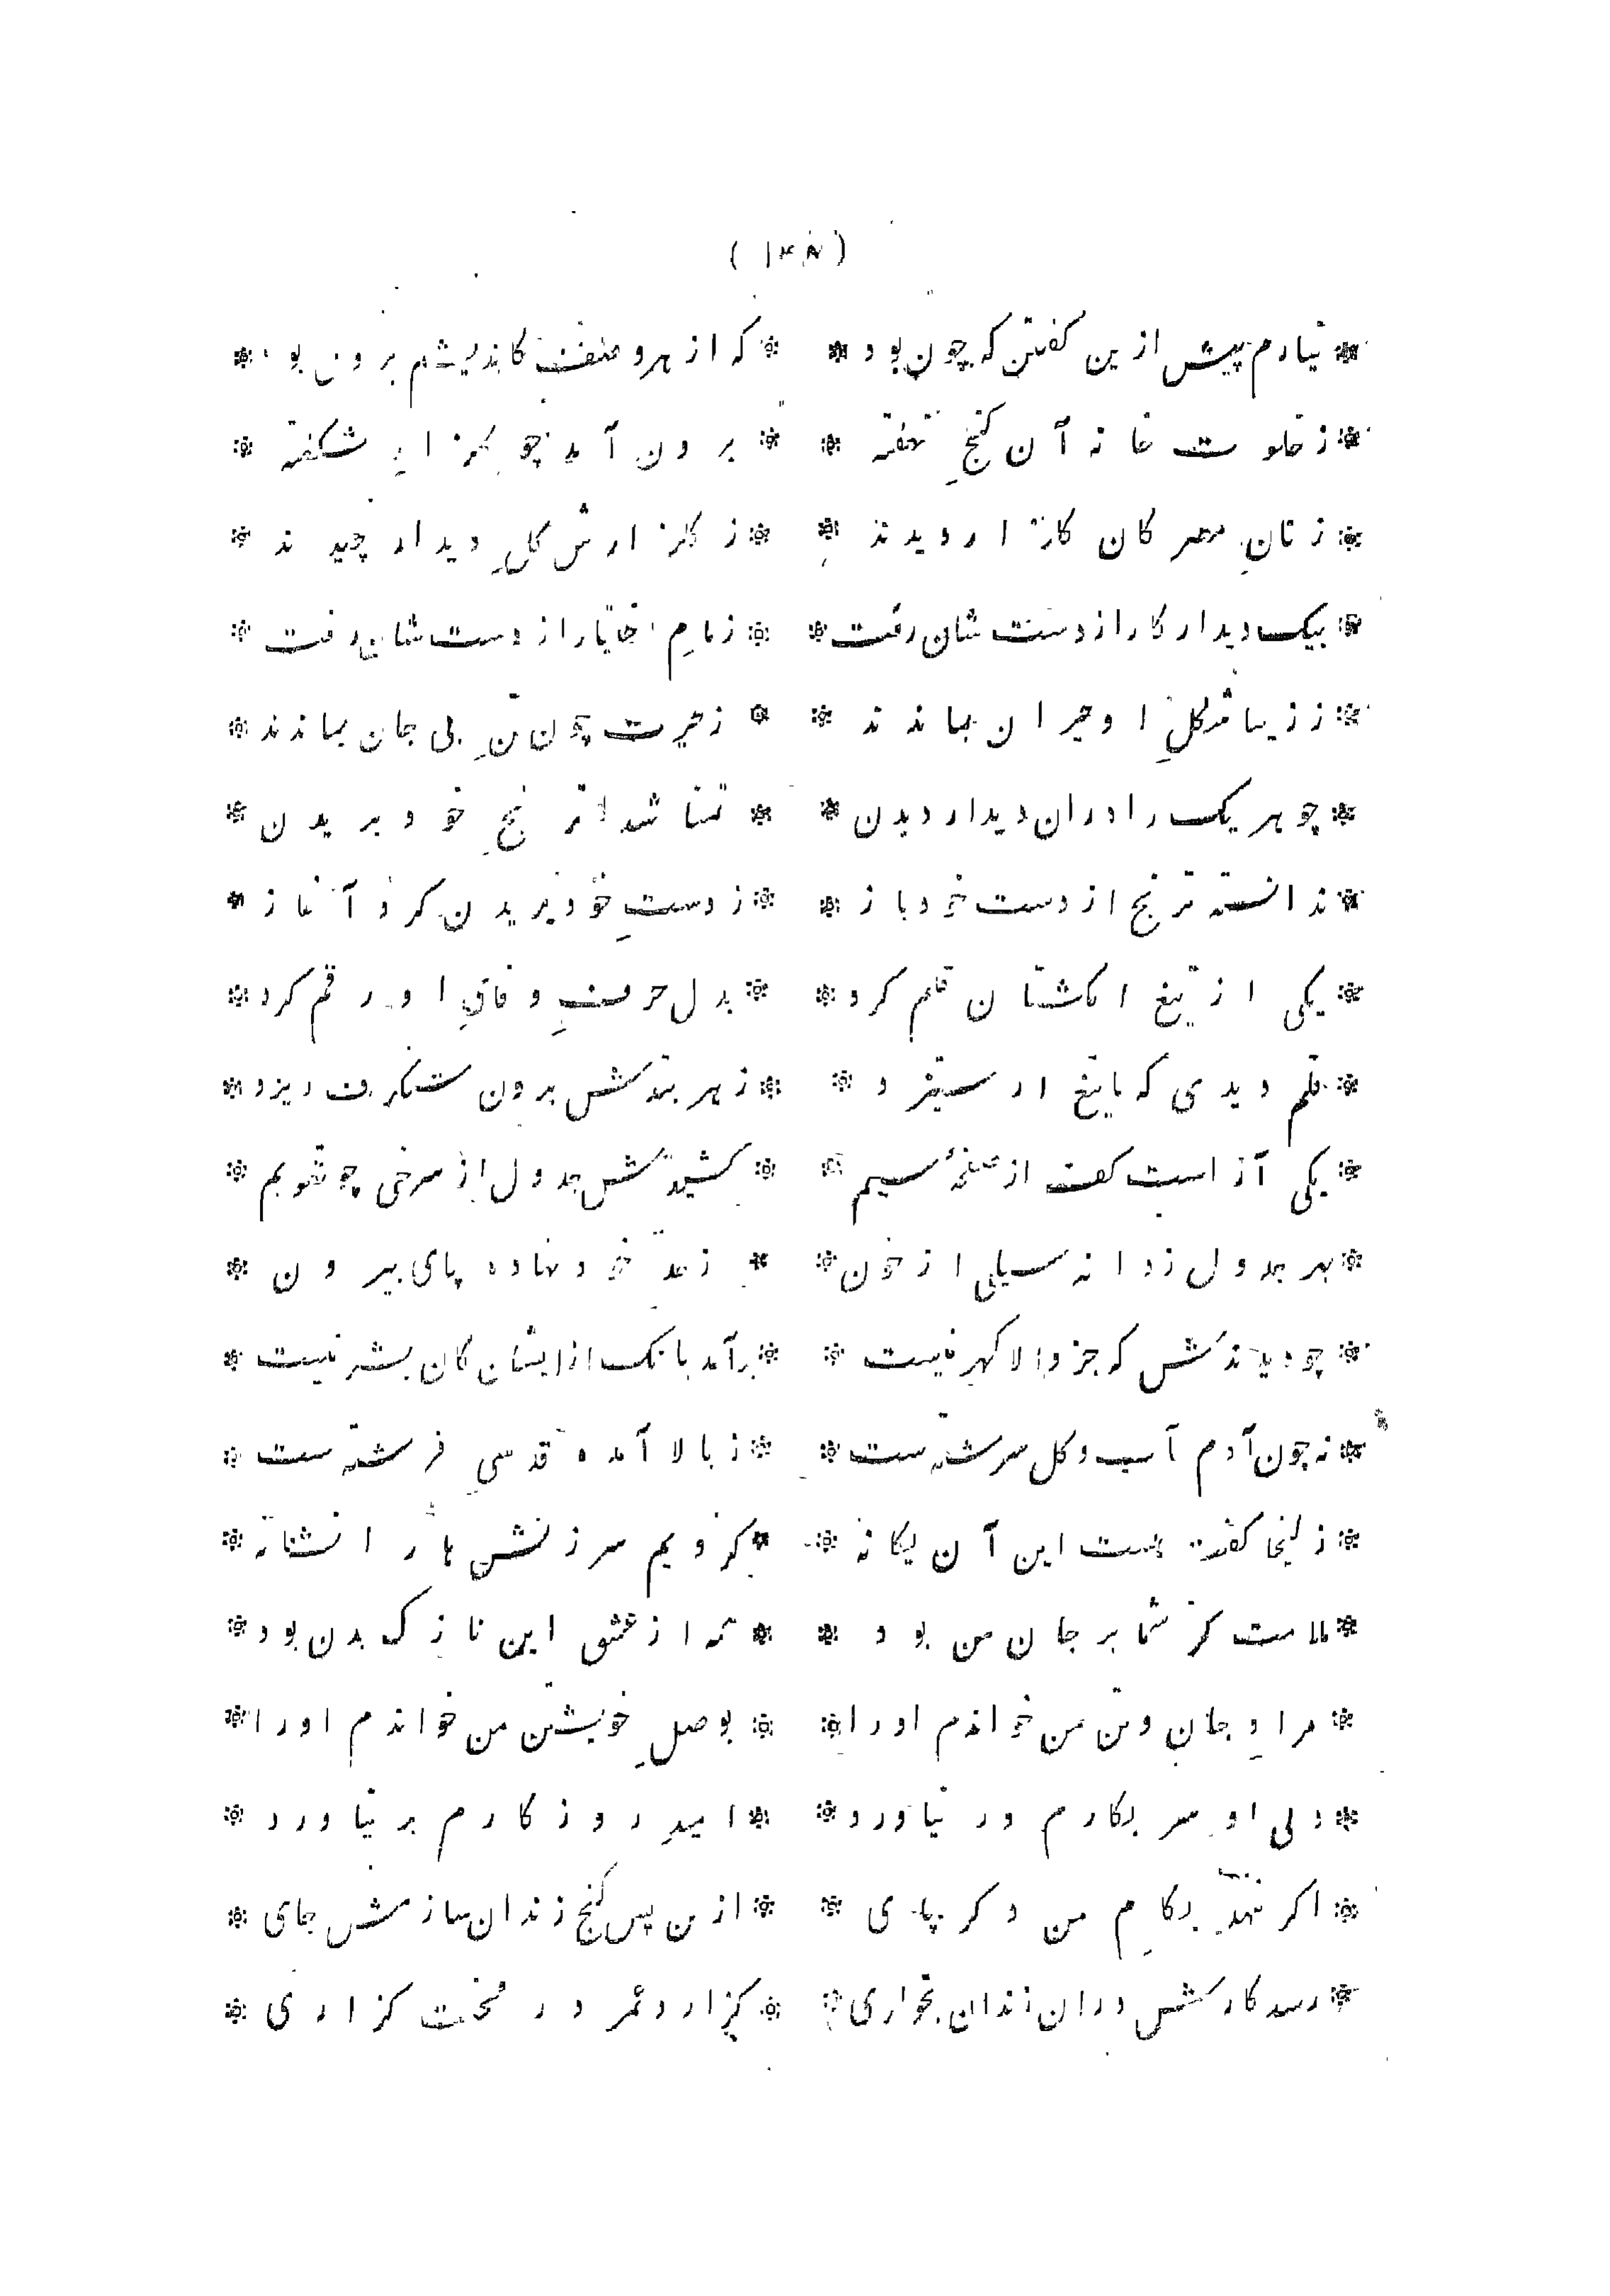 ( ۱۴۸ )
* نیارم پیش ازین کفتن که چون بود * * که از هر وصفت کاندیشم برون بود *
* ز خلوت خانه آن کنجِ نهفته * * برون آمد چو کلزار شکفته *
* زنانِ مصر کان کلزار دیدند * * ز کلزارش کلِ دیدار چیدند *
* بیک دیدار کار از دست شان رفت * * زمامِ اختیار از دست شان رفت *
* ز زیبا شکلِ او حیران بماندند * * ز حیرت چون تنِ بی جان بماندند *
* چو هر یک را دران دیدار دیدن * * تمنا شد ترنجِ خود بریدن *
* ندانسته ترنج از دست خود باز * * ز دستِ خود بریدن کرد آغاز *
* یکی از تیغ انکشتان قلم کرد * * بدل حرفِ وفای او رقم کرد *
* قلم دیدی که با تیغ ار ستیزد * * ز هر بندش برون شنکرف ریزد *
* یکی از کف از صفحهٔ سیم * * کشیدش جدول از سرخی چو تقویم *
* بهر جدول روانه سیلی از خون * * ز حد خود نهاده پای بیرون *
* چو دیدندش که جز والا کهر نیست * * برآمد بانک ازیشان کان بشر نیست *
* نه چون آدم ز آب و کل سرشته ست * * ز بالا آمده قدسی فرشته ست *
* زلیخا کفت هست این آن یکانه * * کزویم سرزنش ها را نشانه *
* ملامت کز شما بر جان من بود * * همه از عشق این نازک بدن بود *
* مراد جان و تن من خواندم او را * * بوصلِ خویشتن من خواندم او را *
* ولی او سر بکارم در نیاورد * * امیدِ روزکارم بر نیاورد *
* اکر ننهد بکامِ من دکر پای * * ازین پس کنج زندان سازمش جای *
* رسد کارش دران زندان بخواری * * کزارد عمر در محنت کزاری *